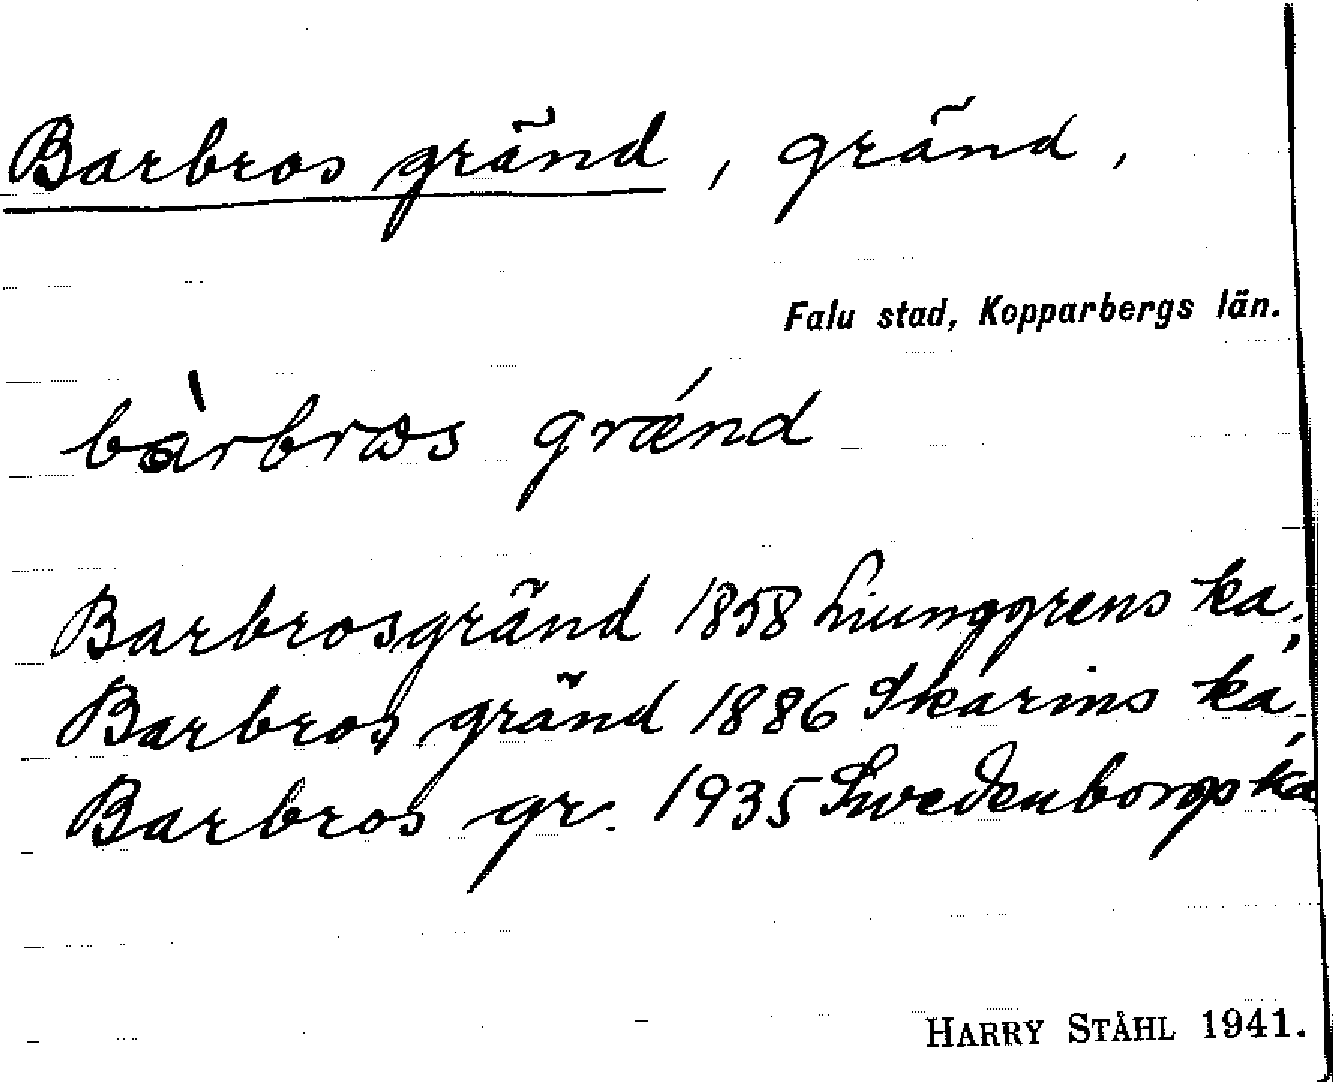 Barbros gränd, gränd,
Falu stad, Kopparbergs län.
bàrbrɷs grǽnd
Barbrosgränd 1858 Liunggrens ka;
Barbros gränd 1886 Skarins ka,
Barbros gr. 1935 Swedenborgs ka
HARRY STÅHL 1941.